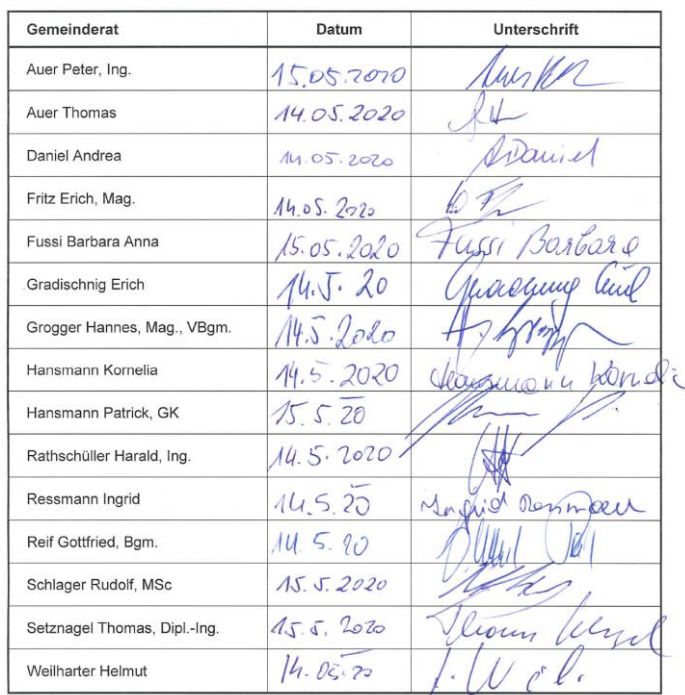 Gemeinderat Datum Unterschrift
Auer Peter, Ing. 15.05.2020
Auer Thomas 14.05.2020
Daniel Andrea 14.05.2020 ADaniel
Fritz Erich, Mag. 14.05.2020
Fussi Barbara Anna 15.05.2020 Fussi Barbara
Gradischnig Erich 14.5.20
Grogger Hannes, Mag., VBgm. 14.5.2020
Hansmann Kornelia 14.5.2020 Hansmann
Hansmann Patrick, GK 15.5.20
Rathschüller Harald, Ing. 14.5.2020
Ressmann Ingrid 14.5.20 Ingrid Ressmann
Reif Gottfried, Bgm. 14.5.20
Schlager Rudolf, MSc 15.5.2020
Setznagel Thomas, Dipl.-Ing. 15.5.2020 Thomas
Weilharter Helmut 14.05.20